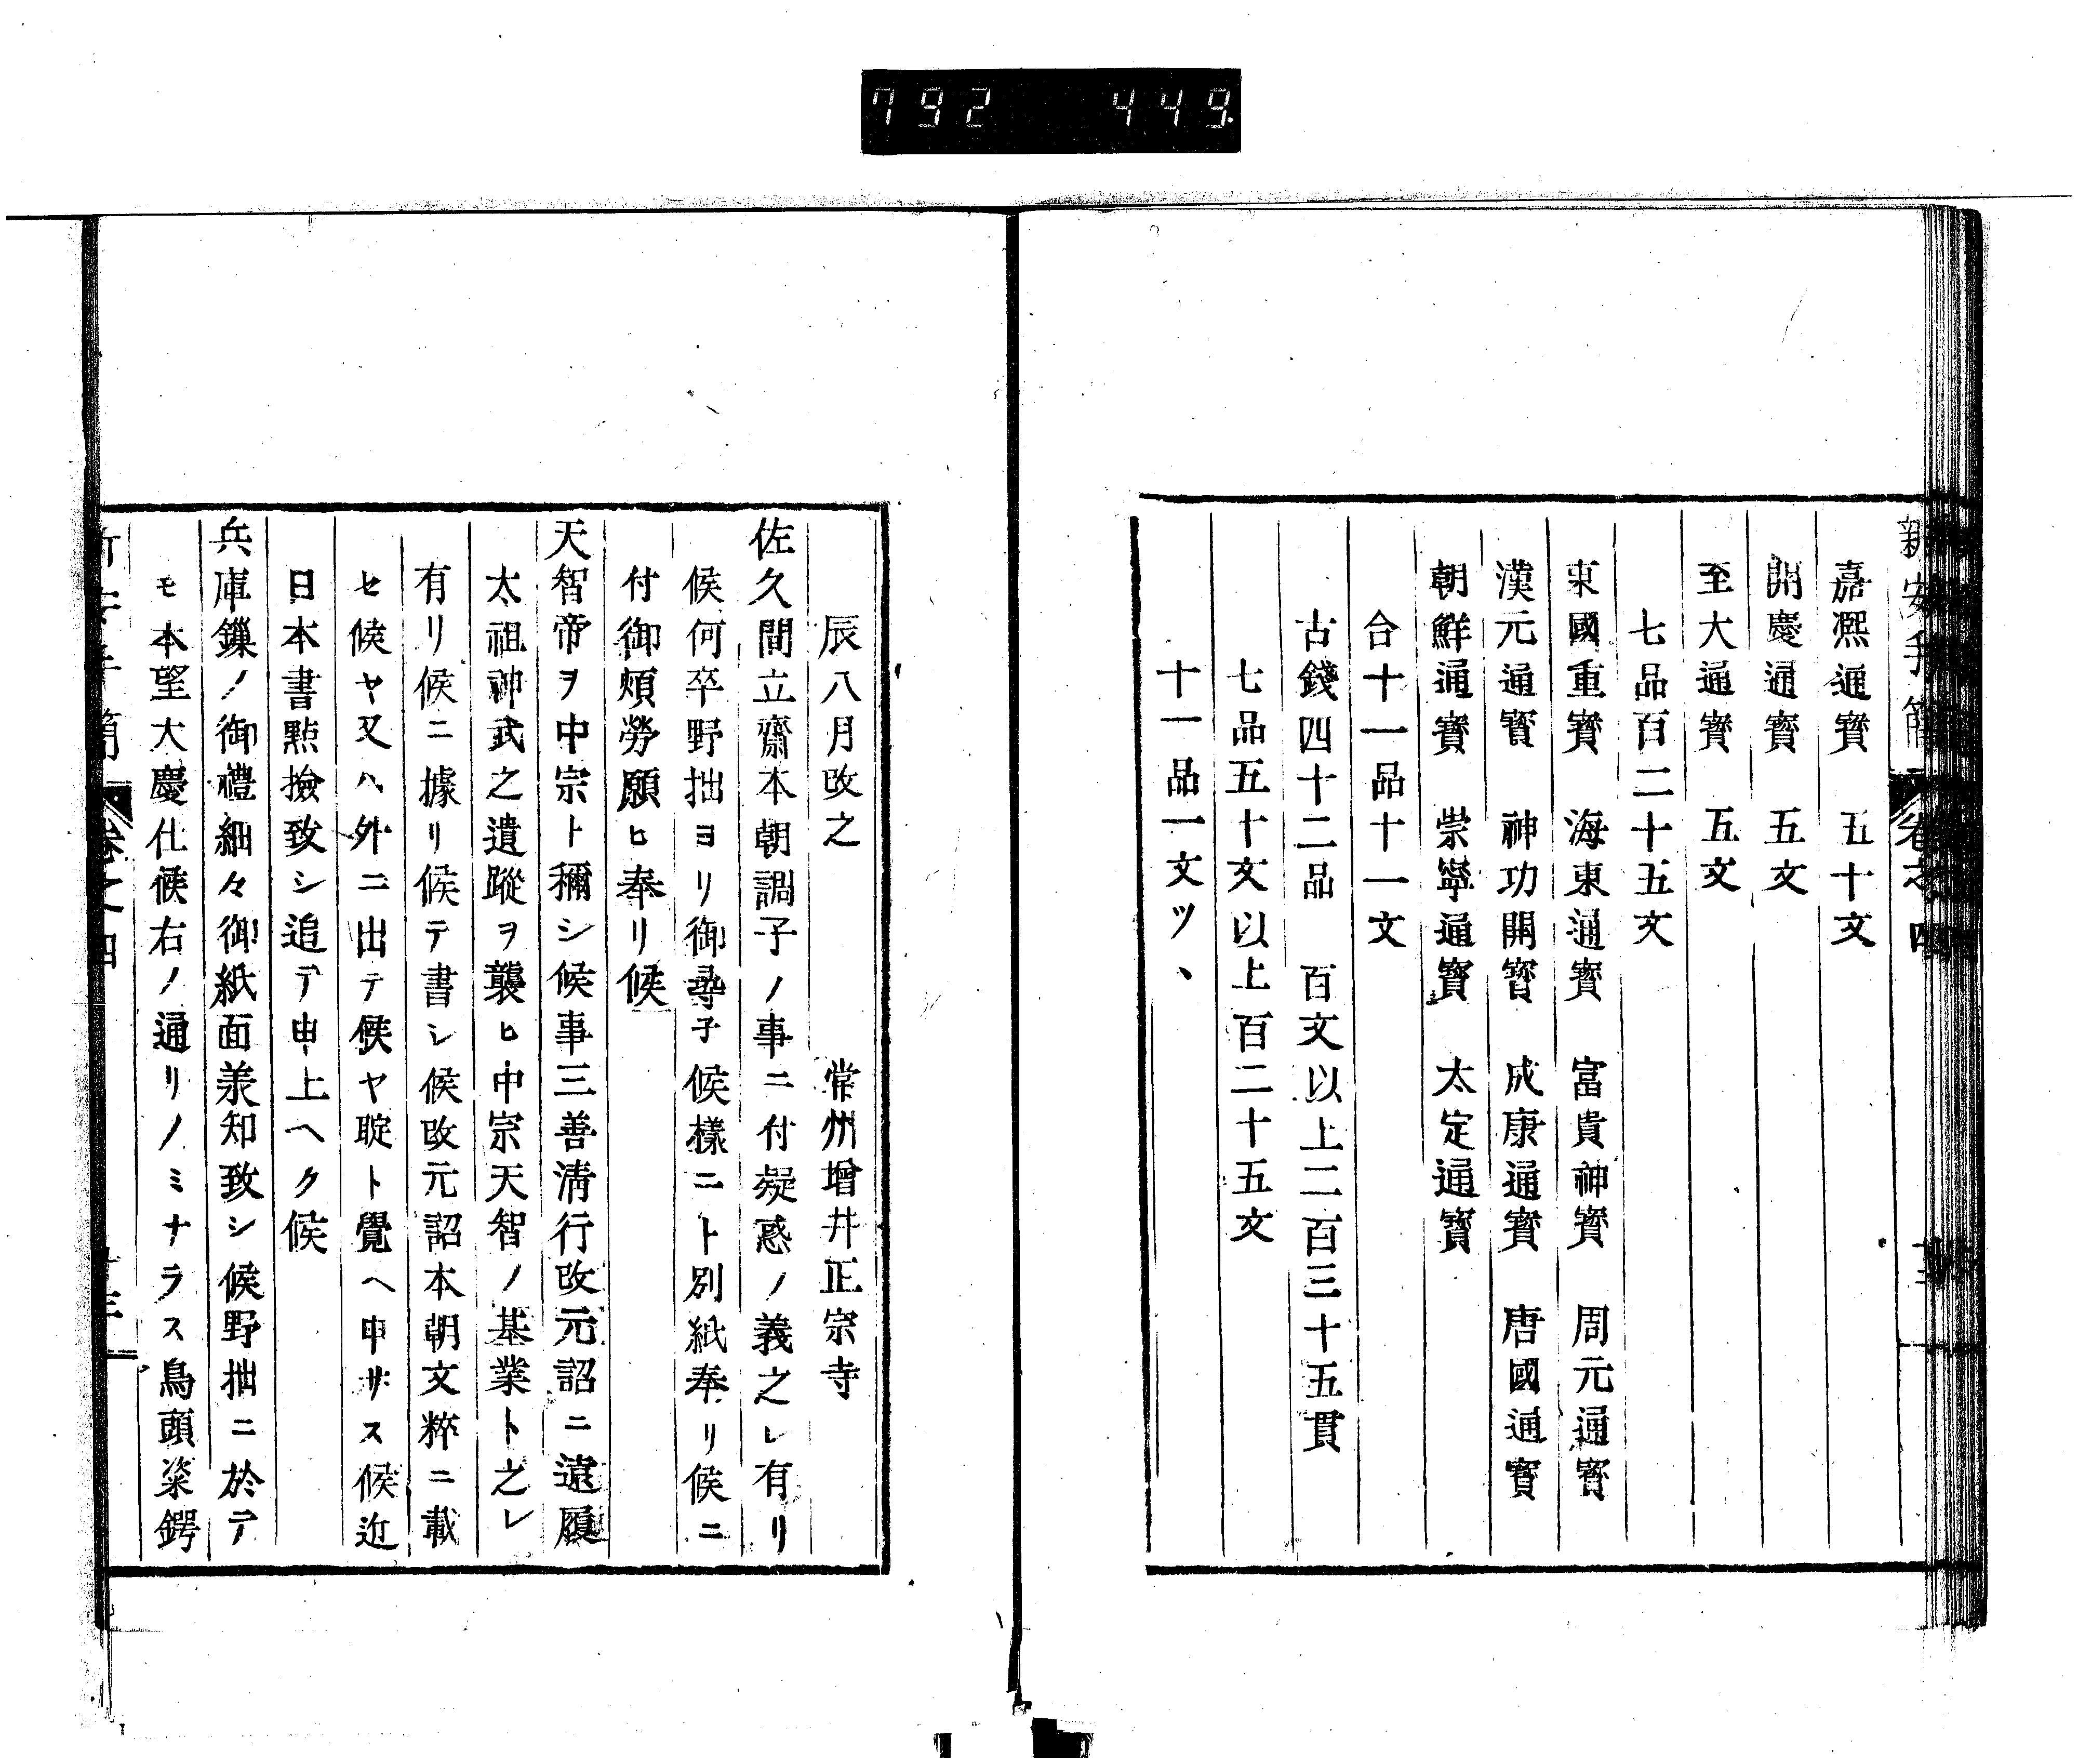 792 449
新安手簡 卷之四
嘉熙通寶 五十文
開慶通寶 五文
至大通寶 五文
七品百二十五文
東國重寶 海東通寶 富貴神寶 周元通寳
漢元通寳 神功開寳 咸康通寳 唐國通寳
朝鮮通寳 崇寧通寶 太定通寶
合十一品十一文
古錢四十二品 百文以上二百三十五貫
七品五十文以上百二十五文
十一品一文ツヽ
辰八月改之 常州增井正宗寺
佐久間立齋本朝調子ノ事ニ付疑惑ノ義之レ有リ
候何卒野拙ヨリ御尋子候樣ニト別紙奉リ候ニ
付御煩勞願ヒ奉リ候
天智帝ヲ中宗ト稱シ候事三善淸行改元詔ニ遠履
太祖神武之遺蹤ヲ襲ヒ中宗天智ノ基業ト之レ
有リ候ニ據リ候テ書シ候改元詔本朝文粹ニ載
セ候ヤ又ハ外ニ出テ候ヤ聢ト覺ヘ申サス候近
日本書點撿致シ追テ申上ヘク候
兵庫鏁ノ御禮細々御紙面羕知致シ候野拙ニ於テ
モ本望大慶仕候右ノ通リノミナラス鳥頭染鍔
卷之四